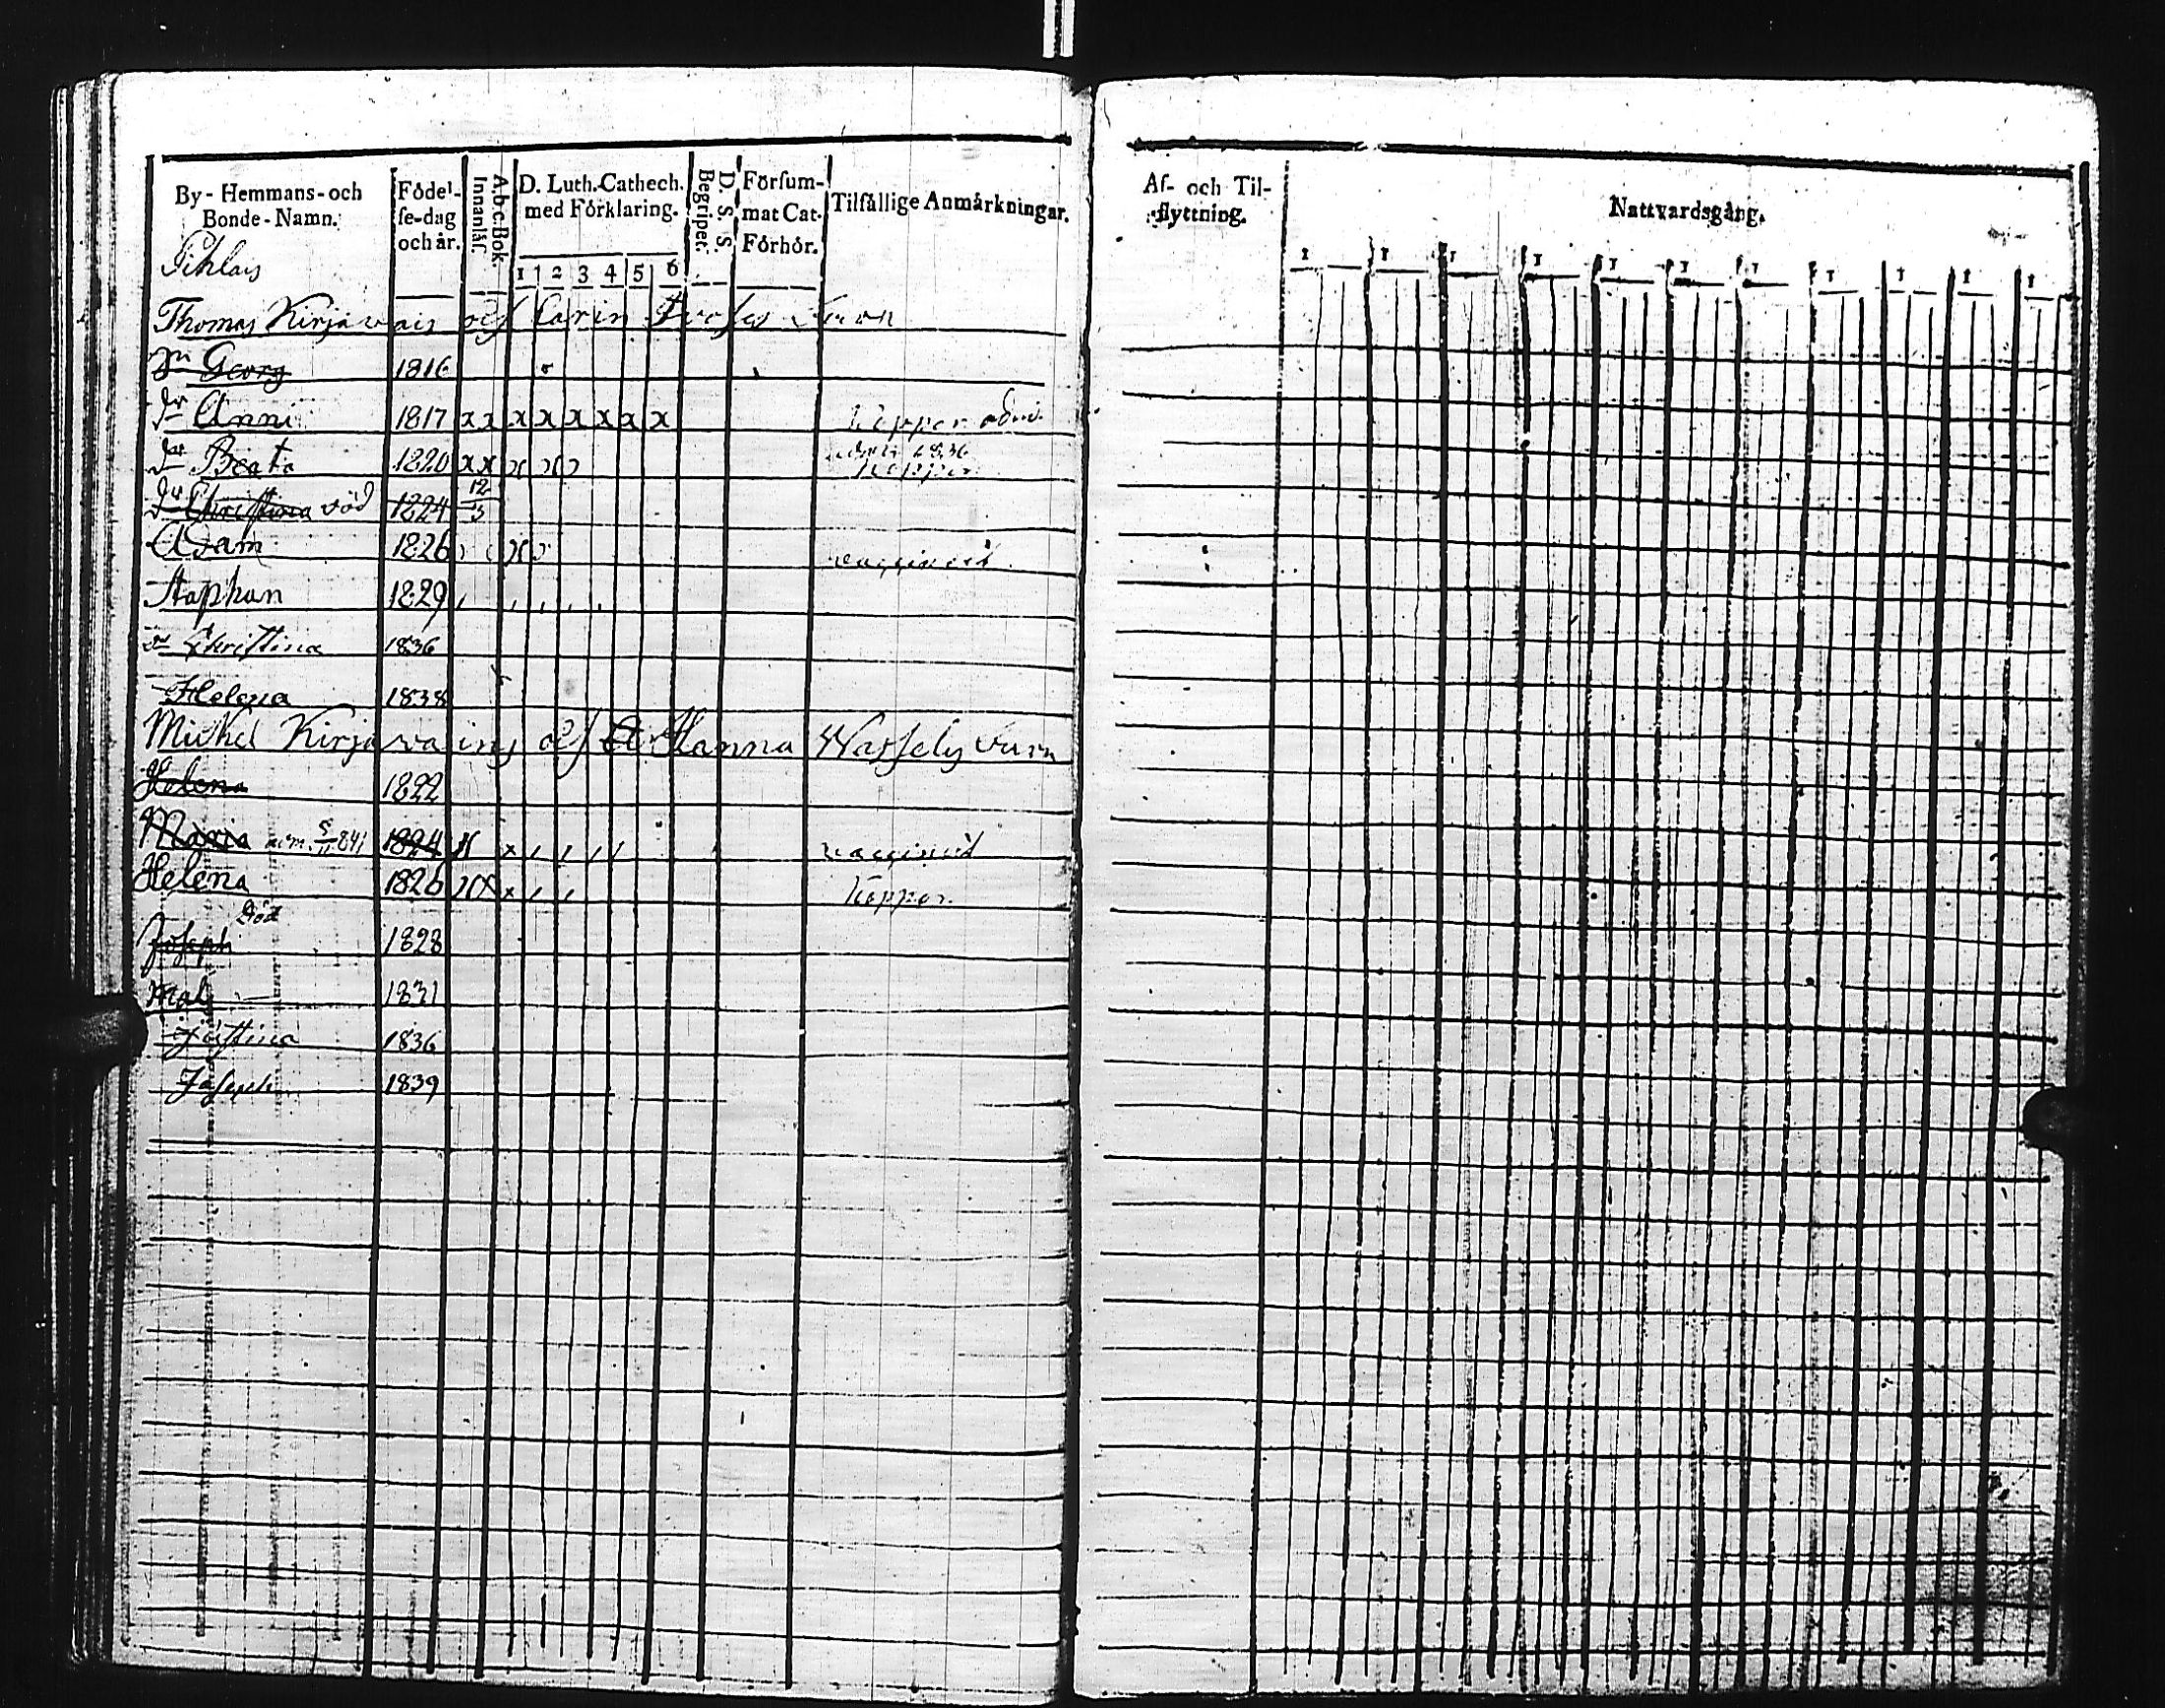 By- Hemmans- och Bonde-Namn.
Födel-se-dag och år.
A.b.c.Bok. Innanläs.
D. Luth. Cathech. med Förklaring.
1 2 3 4 5 6
D. S. S. Begripet.
Försum-mat Cat-Förhör.
Tilfällige Anmärkningar.
Thomas Kirjavais och Carin
Georg 1816
dr Anni 1817 x x x x x x x x koppor adm.
dr Beata 1820 x x x x 1836 koppor
dr Christina död 1824 12/3
Adam 1826 x vaccinerad
Staphan 1829
dr Christina 1836
Helena 1838
Michel Kirjavains och Hanna Wassely barn
Helena 1822
Maria adm. 1841 1824 x x vaccinerad
Helena 1826 x x x koppor
Joseph död 1828
1831
Justina 1836
Joseph 1839
Af- och Til-flyttning.
Nattvardsgång.
1 1 1 1 1 1 1 1 1 1 1